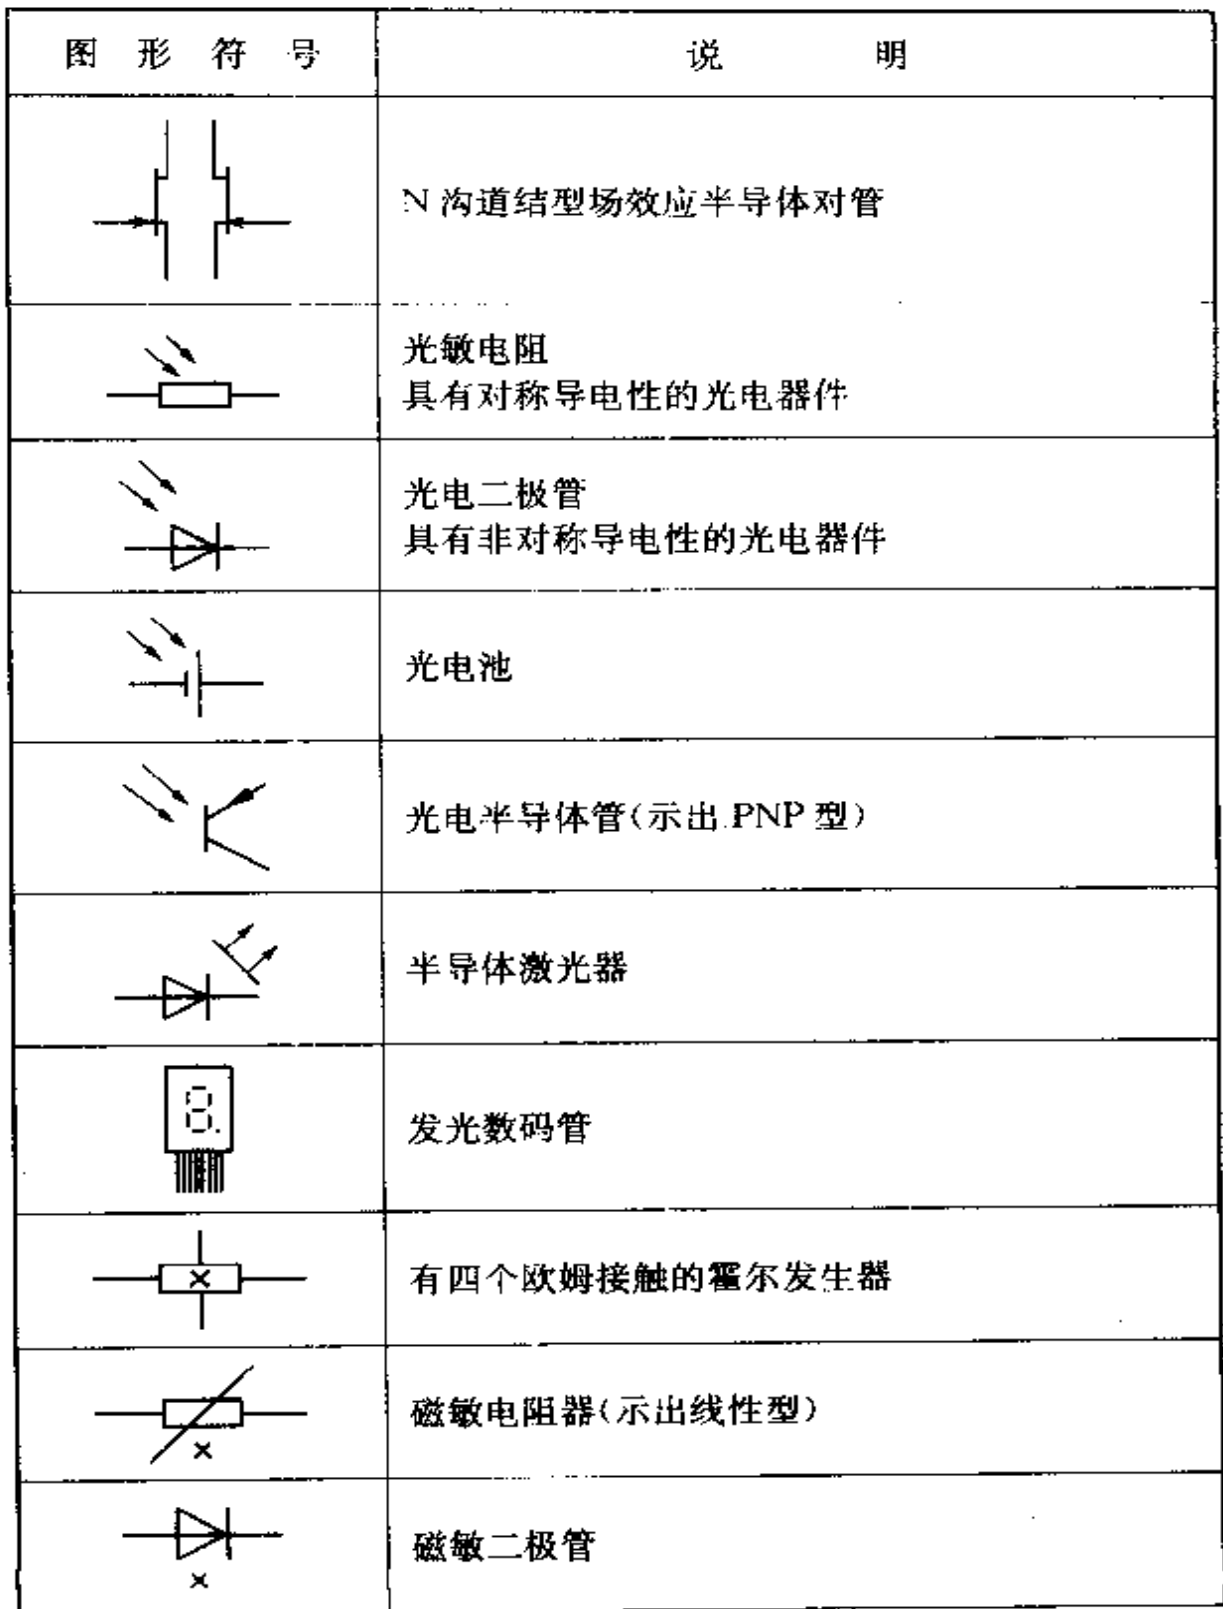 图形符号 说明
N沟道结型场效应半导体对管
光敏电阻
具有对称导电性的光电器件
光电二极管
具有非对称导电性的光电器件
光电池
光电半导体管(示出PNP型)
半导体激光器
8.
发光数码管
有四个欧姆接触的霍尔发生器
磁敏电阻器(示出线性型)
磁敏二极管